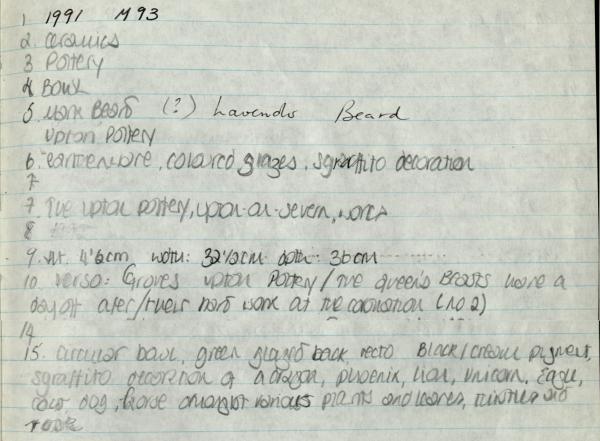 1 1991 M93
2. Ceramics
3 Pottery
4 Bowl
5. Mark Beard (?) Lavender Beard
Upton Pottery
6. earthenware, coloured glazes, sgraffito decoration
7
7. The Upton Pottery, Upton-on-Severn, Worcs
8
9. Ht. 4½cm wdth: 32½cm dpth: 36cm
10. Verso: Groves Upton Pottery / The Queen's Beasts have a
day off after / their hard work at the coronation (no 2)
14
15. Circular bowl, green glazed back, recto Black/cream pigment,
sgraffito decoration of a dragon, phoenix, lion, unicorn, Eagle,
dog, horse amongst various plants and leaves, thistles and